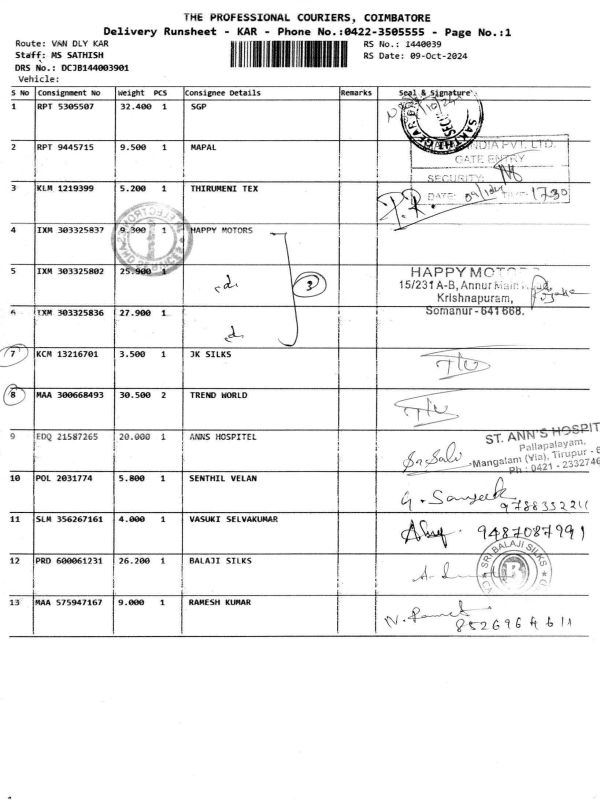 THE PROFESSIONAL COURIERS, COIMBATORE
Delivery Runsheet - KAR - Phone No.:0422-3505555 - Page No.:1
Route: VAN DLY KAR
RS No.: 1440039
Staff: MS SATHISH
RS Date: 09-Oct-2024
DRS No.: DCJB144003901
Vehicle:
S No Consignment No Weight PCS Consignee Details Remarks Seal & Signature
1 RPT 5305507 32.400 1 SGP
2 RPT 9445715 9.500 1 MAPAL
INDIA PVT. LTD.
GATE ENTRY
SECURITY:
DATE: 09/10/24 TIME: 1730
3 KLM 1219399 5.200 1 THIRUMENI TEX
P.R.
4 IXM 303325837 9.300 1 HAPPY MOTORS
5 IXM 303325802 25.900 1
3
HAPPY MOTORS
15/231 A-B, Annur Main
Krishnapuram,
Somanur - 641 668.
6 IXM 303325836 27.900 1
7 KCM 13216701 3.500 1 JK SILKS
8 MAA 300668493 30.500 2 TREND WORLD
9 EDQ 21587265 20.000 1 ANNS HOSPITEL
ST. ANN'S HOSPIT
Pallapalayam,
Mangalam (Via), Tirupur - 6
Ph : 0421 - 2332746
10 POL 2031774 5.800 1 SENTHIL VELAN
G. Sanjeek
9788332211
11 SLM 356267161 4.000 1 VASUKI SELVAKUMAR
9487087991
12 PRD 600061231 26.200 1 BALAJI SILKS
SRI BALAJI SILKS
B
13 MAA 575947167 9.000 1 RAMESH KUMAR
8526964611